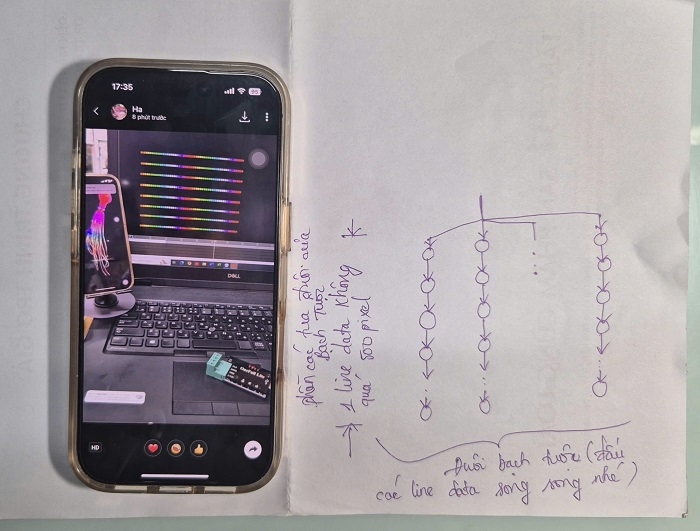 17:35
89
Ha
8 phút trước
DELL
HD
phần các tua đuôi của
Bạch tuộc
→ 1 line data không
quá 800 pixel
Đuôi bạch tuộc (đấu
các line data song song nhé)